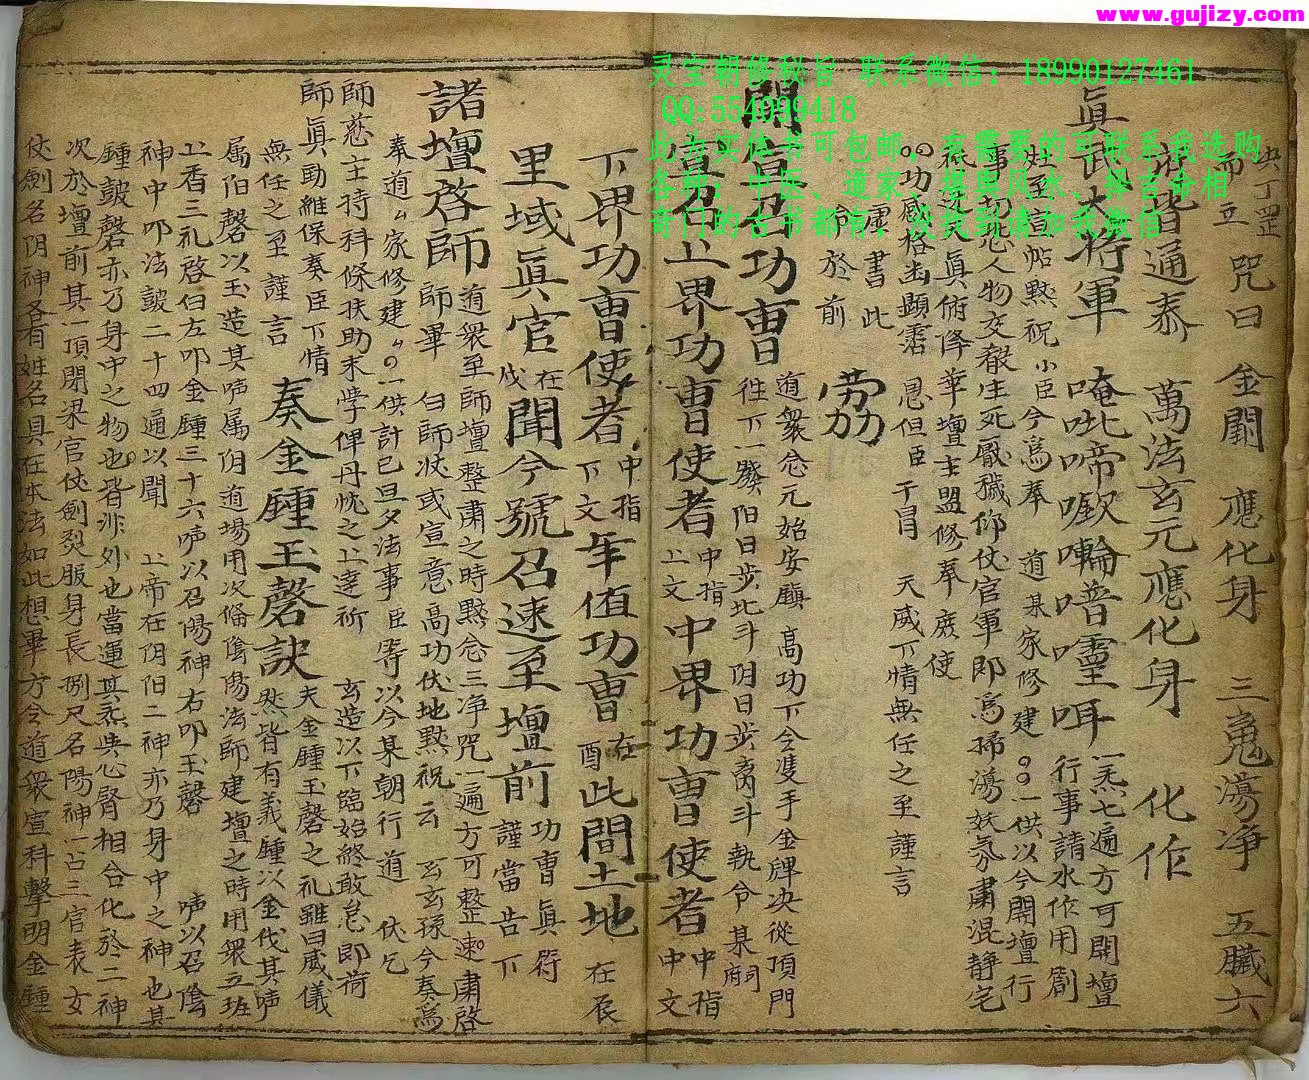 www.gujizy.com
灵宝朝修秘旨 联系微信：18990127461
QQ:554099418
此为实体书可包邮，有需要的可联系我选购
各种：中医、道家、堪舆风水、择吉命相
奇门的古书都有，没找到请加我微信
決丁罡
希立 咒曰 金闕 應化身 三嵬蕩净 五臟六
皆通泰 萬法玄元應化身 化作
眞武大將軍 唵吡啼 普 咡 一炁七遍方可開壇 行事請水作用劄
至 帖黙祝 小臣今爲奉 道某家修建 一供以今開壇行
事 人物交 生死厭穢仰仗官軍即爲掃蕩妖氛肅混静宅
眞俯降華壇主盟修奉庻使
功感格出顯霑 恩但臣干冒 天威下情無任之至謹言
書此
於前 劳
召功曹 道衆念元始安鎭 高功下令隻手金牌决從頂門
往下一發阳日步北斗阴日步 斗執令某 府
召上界功曹使者 中指上文 中界功曹使者 中指中文
下界功曹使者 中指下文 年值功曹 在酉 此間土地 在辰
里域眞官 在戌 聞今號召速至壇前 功曹眞符 謹當告下
諸壇啓師 道衆至師壇整肅之時黙念三净咒一遍方可整 肅啓
師畢 白師 或宣意高功伏地黙祝云 玄玄孫今奏爲
奉道 家修建 一供計已旦夕法事臣等以今某朝行道 伏乞
師慈主持科條扶助末學俾丹忱之上達祈 玄造以下臨始終敢怠即荷
師眞勛維保奏臣下情
無任之至謹言 奏金鍾玉磬訣 夫金鍾玉磬之礼雖曰威儀
然皆有義鍾以金伐其声
属阳磬以玉造其声属阴道場用次 陰陽法師建壇之時用衆五班
上香三礼啓曰左叩金鍾三十六声以召陽神右叩玉磬 声以召陰
神中叩法皷二十四通以聞 上帝在阴阳二神亦乃身中之神也其
鍾皷磬亦乃身中之物也皆非外也當運其炁 心腎相合化於二神
次於壇前其一頂閉梁官仗劍裂服身長捌尺名陽神一占三官表女
仗劍名阴神各有姓名具在本法如此想畢方令道衆宣科擊明金鍾